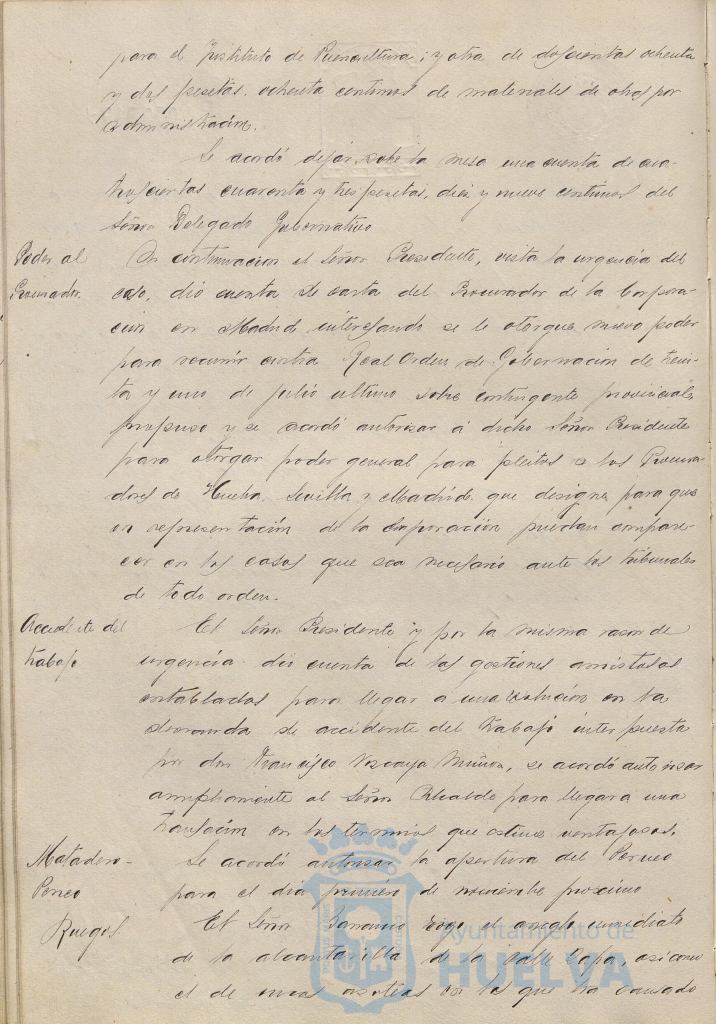 para el Instituto de Puericultura; y otra de doscientas ochenta
y dos pesetas, ochenta centimos de materiales de obras por
administración.
Se acordó dejar sobre la mesa una cuenta de cua-
trocientas cuarenta y tres pesetas, diez y nueve centimos del
Señor Delegado Gubernativo
Poder al
Procurador.
A continuacion el Señor Presidente, vista la urgencia del
caso, dió cuenta de carta del Procurador de la Corpora-
ción en Madrid interesando se le otorgue nuevo poder
para recurrir contra Real Orden de Gobernación de trein-
ta y uno de julio ultimo sobre contingente provincial,
propuso y se acordó autorizar á dicho Señor Presidente
para otorgar poder general para pleitos a los Procura-
dores de Huelva, Sevilla y Madrid, que designe para que
en representación de la Corporación puedan compare-
cer en los casos que sea necesario ante los tribunales
de todo orden.
Accidente del
trabajo
El Señor Presidente y por la misma razon de
urgencia dió cuenta de las gestiones amistosas
entabladas para llegar a una solución en la
demanda de accidente del trabajo interpuesta
por don Francisco Vizcaya Muñoz, se acordó autorizar
ampliamente al Señor Alcalde para llegar a una
transación en los terminos que estime ventajosos.
Matadero-
Porco
Se acordó autorizar la apertura del Perneo
para el dia primero de noviembre proximo
Ruegos.
El Señor rogó el arreglo inmediato
de la alcantarilla de la calle asi como
el de unas azoteas en las que ha causado
Ayuntamiento de
HUELVA